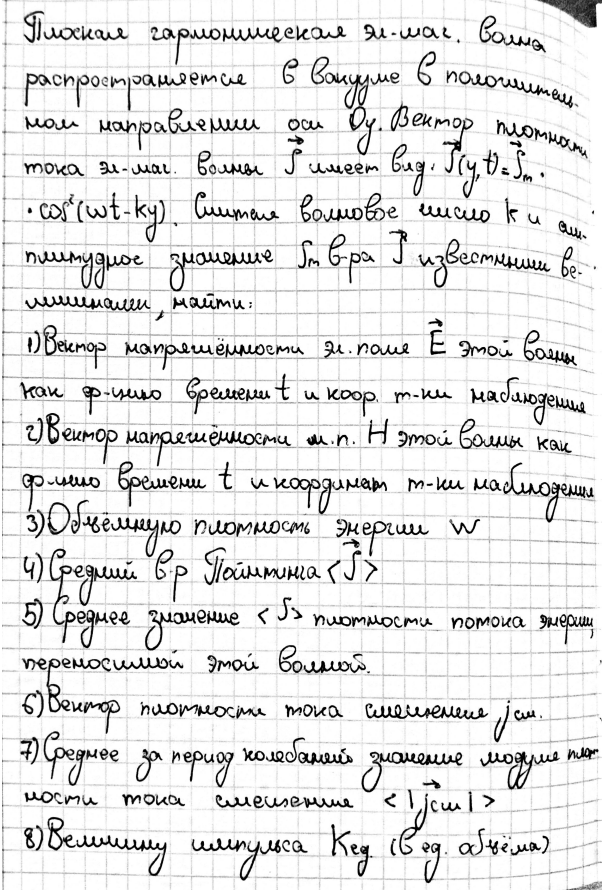 Плоская гармоническая эл-маг. волна
распространяется в вакууме в положитель-
ном направлении оси Oy. Вектор плотности
тока эл-маг. волны S⃗ имеет вид: S⃗(y,t)=S⃗m·
·cos²(ωt-ky). Считая волновое число k и ам-
плитудное значение Sm в-ра S⃗ известными ве-
личинами, найти:
1) Вектор напряжённости эл. поля E⃗ этой волны
как ф-цию времени t и коор. т-ки наблюдения
2) Вектор напряжённости м.п. H этой волны как
ф-цию времени t и координат т-ки наблюдения
3) Объёмную плотность энергии w
4) Средний в-р Пойнтинга <S⃗>
5) Среднее значение <S> плотности потока энергии,
переносимой этой волной.
6) Вектор плотности тока смещения jсм.
7) Среднее за период колебаний значение модуля плот-
ности тока смещения <|j⃗см|>
8) Величину импульса Kед. (в ед. объёма)